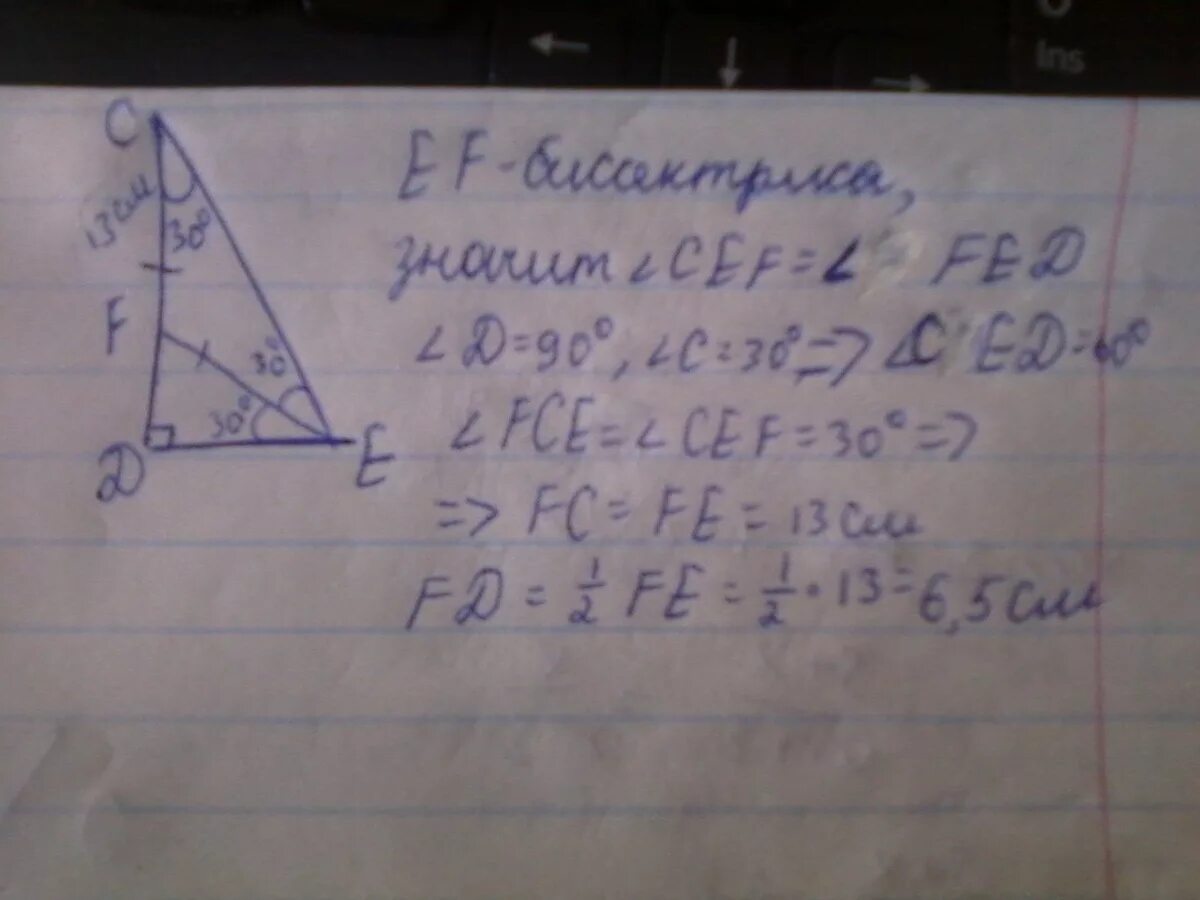 Ins
C
13 см
30°
F
30°
30°
D
E
EF - биссектриса,
значит ∠CEF = ∠ FED
∠D = 90°, ∠C = 30° => ∠CED = 60°
∠FCE = ∠CEF = 30° =>
=> FC = FE = 13 см
FD = 1/2 FE = 1/2 · 13 = 6,5 см